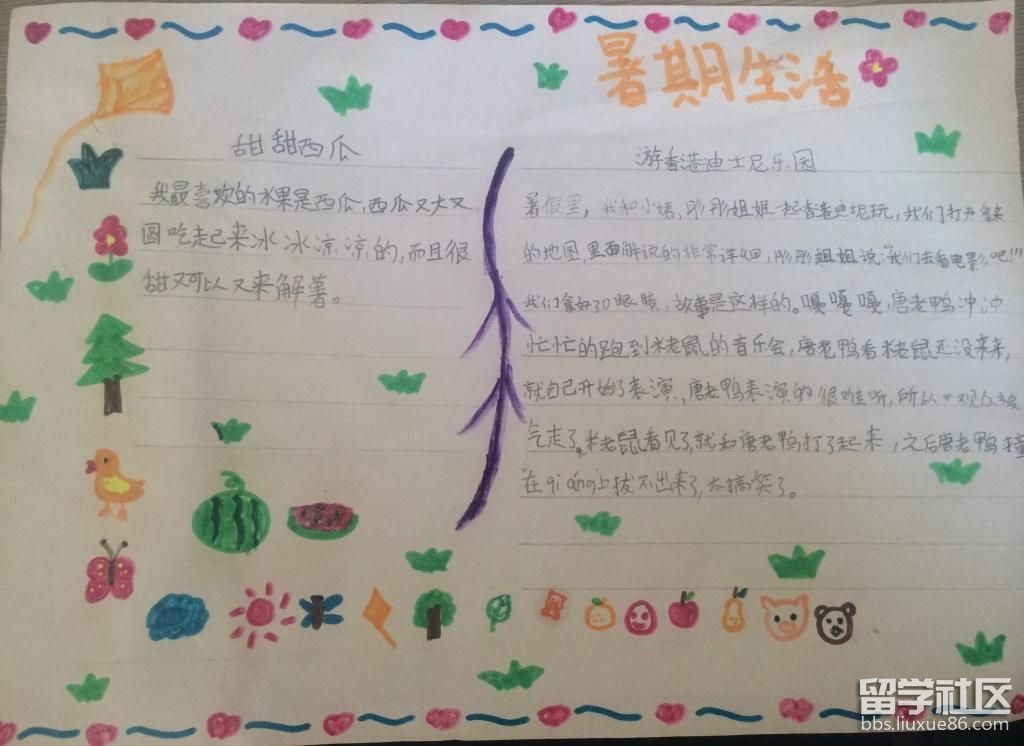 暑期生活
甜甜西瓜
我最喜欢的水果是西瓜,西瓜又大又
圆吃起来冰冰凉凉的,而且很
甜又可以又来解暑。
游香港迪士尼乐园
暑假里,我和小姨,彤彤姐姐一起香港迪尼玩,我们打开
的地图,里面解说的非常详细,彤彤姐姐说:“我们去看电影吧!!!”
我们拿好3D眼镜,故事是这样的。嘎嘎嘎,唐老鸭冲冲
忙忙的跑到米老鼠的音乐会,唐老鸭看米老鼠还没来,
就自己开始了表演,唐老鸭表演的很难听,所以观众被
气走了,米老鼠看见了,就和唐老鸭打了起来,之后唐老鸭撞
在qiáng上拔不出来了,太搞笑了。
留学社区
bbs.liuxue86.com